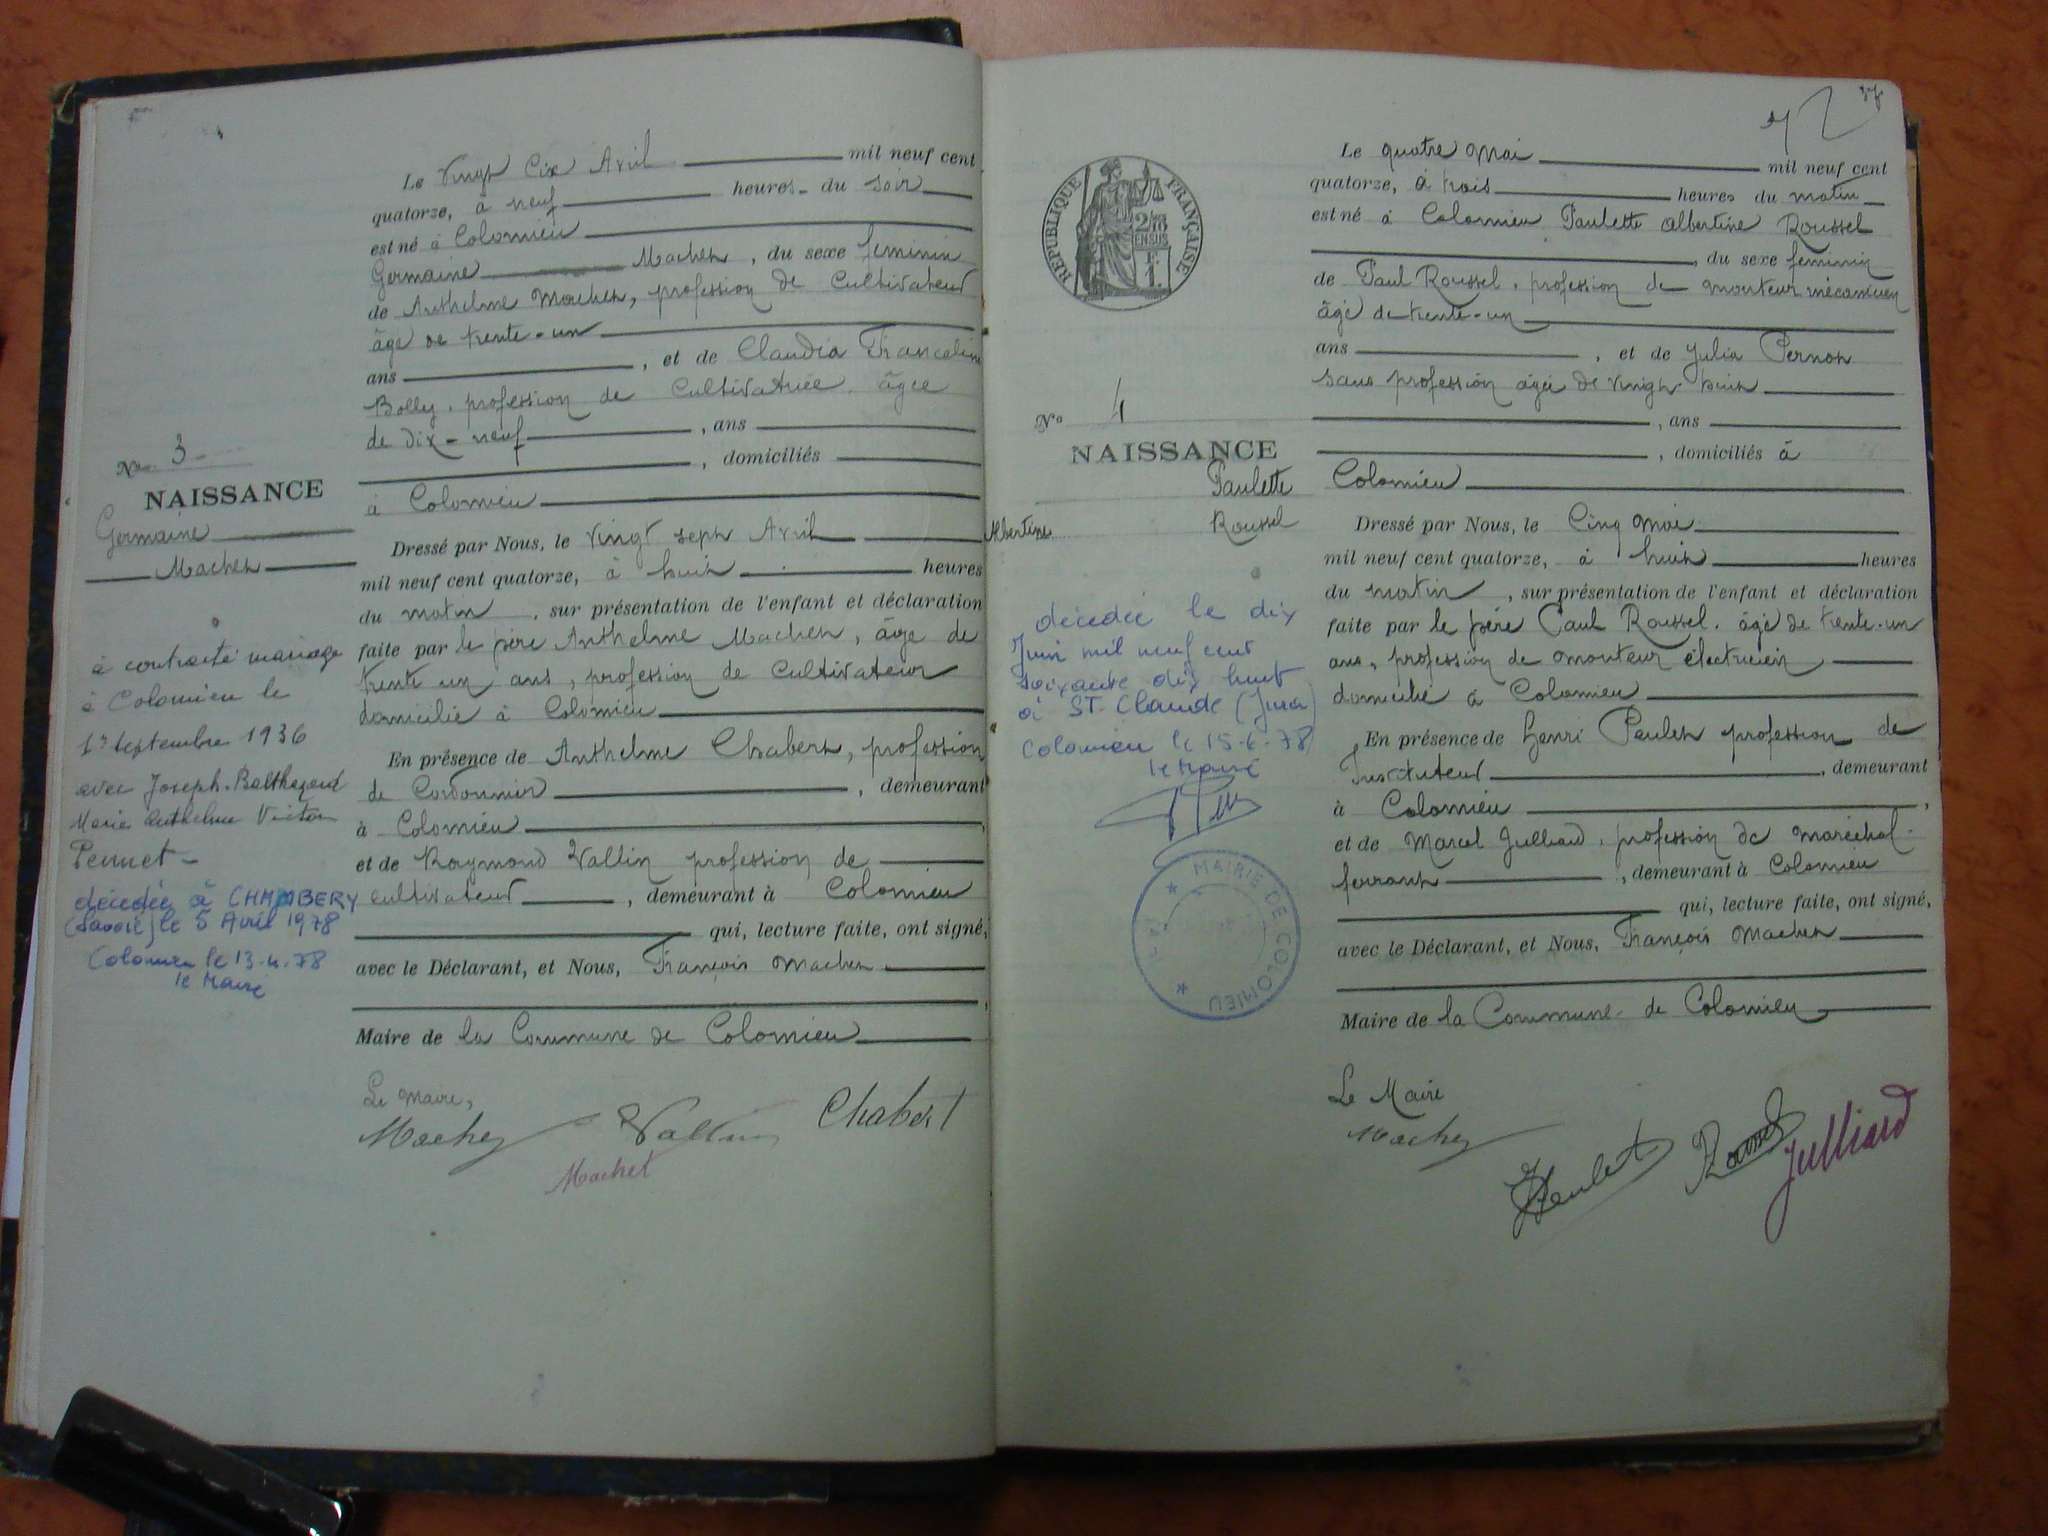 Le Vingt Cix Avril mil neuf cent
quatorze, à neuf heures du soir
est né à Colomieu
Germaine Machet, du sexe feminin
de Anthelme Machet, profession de Cultivateur
âgé de trente-un
ans, et de Claudia Franceline
Bolly, profession de Cultivatrice, âgée
de dix-neuf, ans
, domiciliés
à Colomieu
No 3
NAISSANCE
Germaine
Machet
Dressé par Nous, le vingt sept Avril
mil neuf cent quatorze, à huit heures
du matin, sur présentation de l'enfant et déclaration
faite par le père Anthelme Machet, âgé de
trente un ans, profession de Cultivateur
domicilié à Colomieu
En présence de Anthelme Chabert, profession
de Cordonnier, demeurant
à Colomieu
et de Raymond Vallin profession de
cultivateur, demeurant à Colomieu
qui, lecture faite, ont signé,
avec le Déclarant, et Nous, François Machet
Maire de la Commune de Colomieu
à contracté mariage
à Colomieu le
1er septembre 1936
avec Joseph-Balthazard
Marie Anthelme Victor
Pennet-
décédée à CHAMBERY
(Savoie) le 5 Avril 1978
Colomieu le 13.4.78
le Maire
Le Maire,
Machet Vallin Chabert
Machet
37
Le quatre Mai mil neuf cent
quatorze, à trois heures du matin
est né à Colomieu Paulette Albertine Roussel
, du sexe feminin
de Paul Roussel, profession de monteur mécanicien
âgé de trente-un
ans, et de Julia Pernon
sans profession âgée de vingt huit
, ans
, domiciliés à
Colomieu
RÉPUBLIQUE FRANÇAISE
2/10
EN SUS
1 F.
No 4
NAISSANCE
Paulette
Albertine Roussel
Dressé par Nous, le Cinq Mai
mil neuf cent quatorze, à huit heures
du matin, sur présentation de l'enfant et déclaration
faite par le père Paul Roussel, âgé de trente-un
ans, profession de monteur électricien
domicilié à Colomieu
En présence de Henri Paulet profession de
Instituteur, demeurant
à Colomieu,
et de Marcel Julliard, profession de maréchal-
ferrant, demeurant à Colomieu
qui, lecture faite, ont signé,
avec le Déclarant, et Nous, François Machet
Maire de la Commune de Colomieu
décédée le dix
Juin mil neuf cent
soixante dix huit
à ST. Claude (Jura)
Colomieu le 15-6-78
le Maire
MAIRIE DE COLOMIEU
Le Maire
Machet
Roussel Julliard